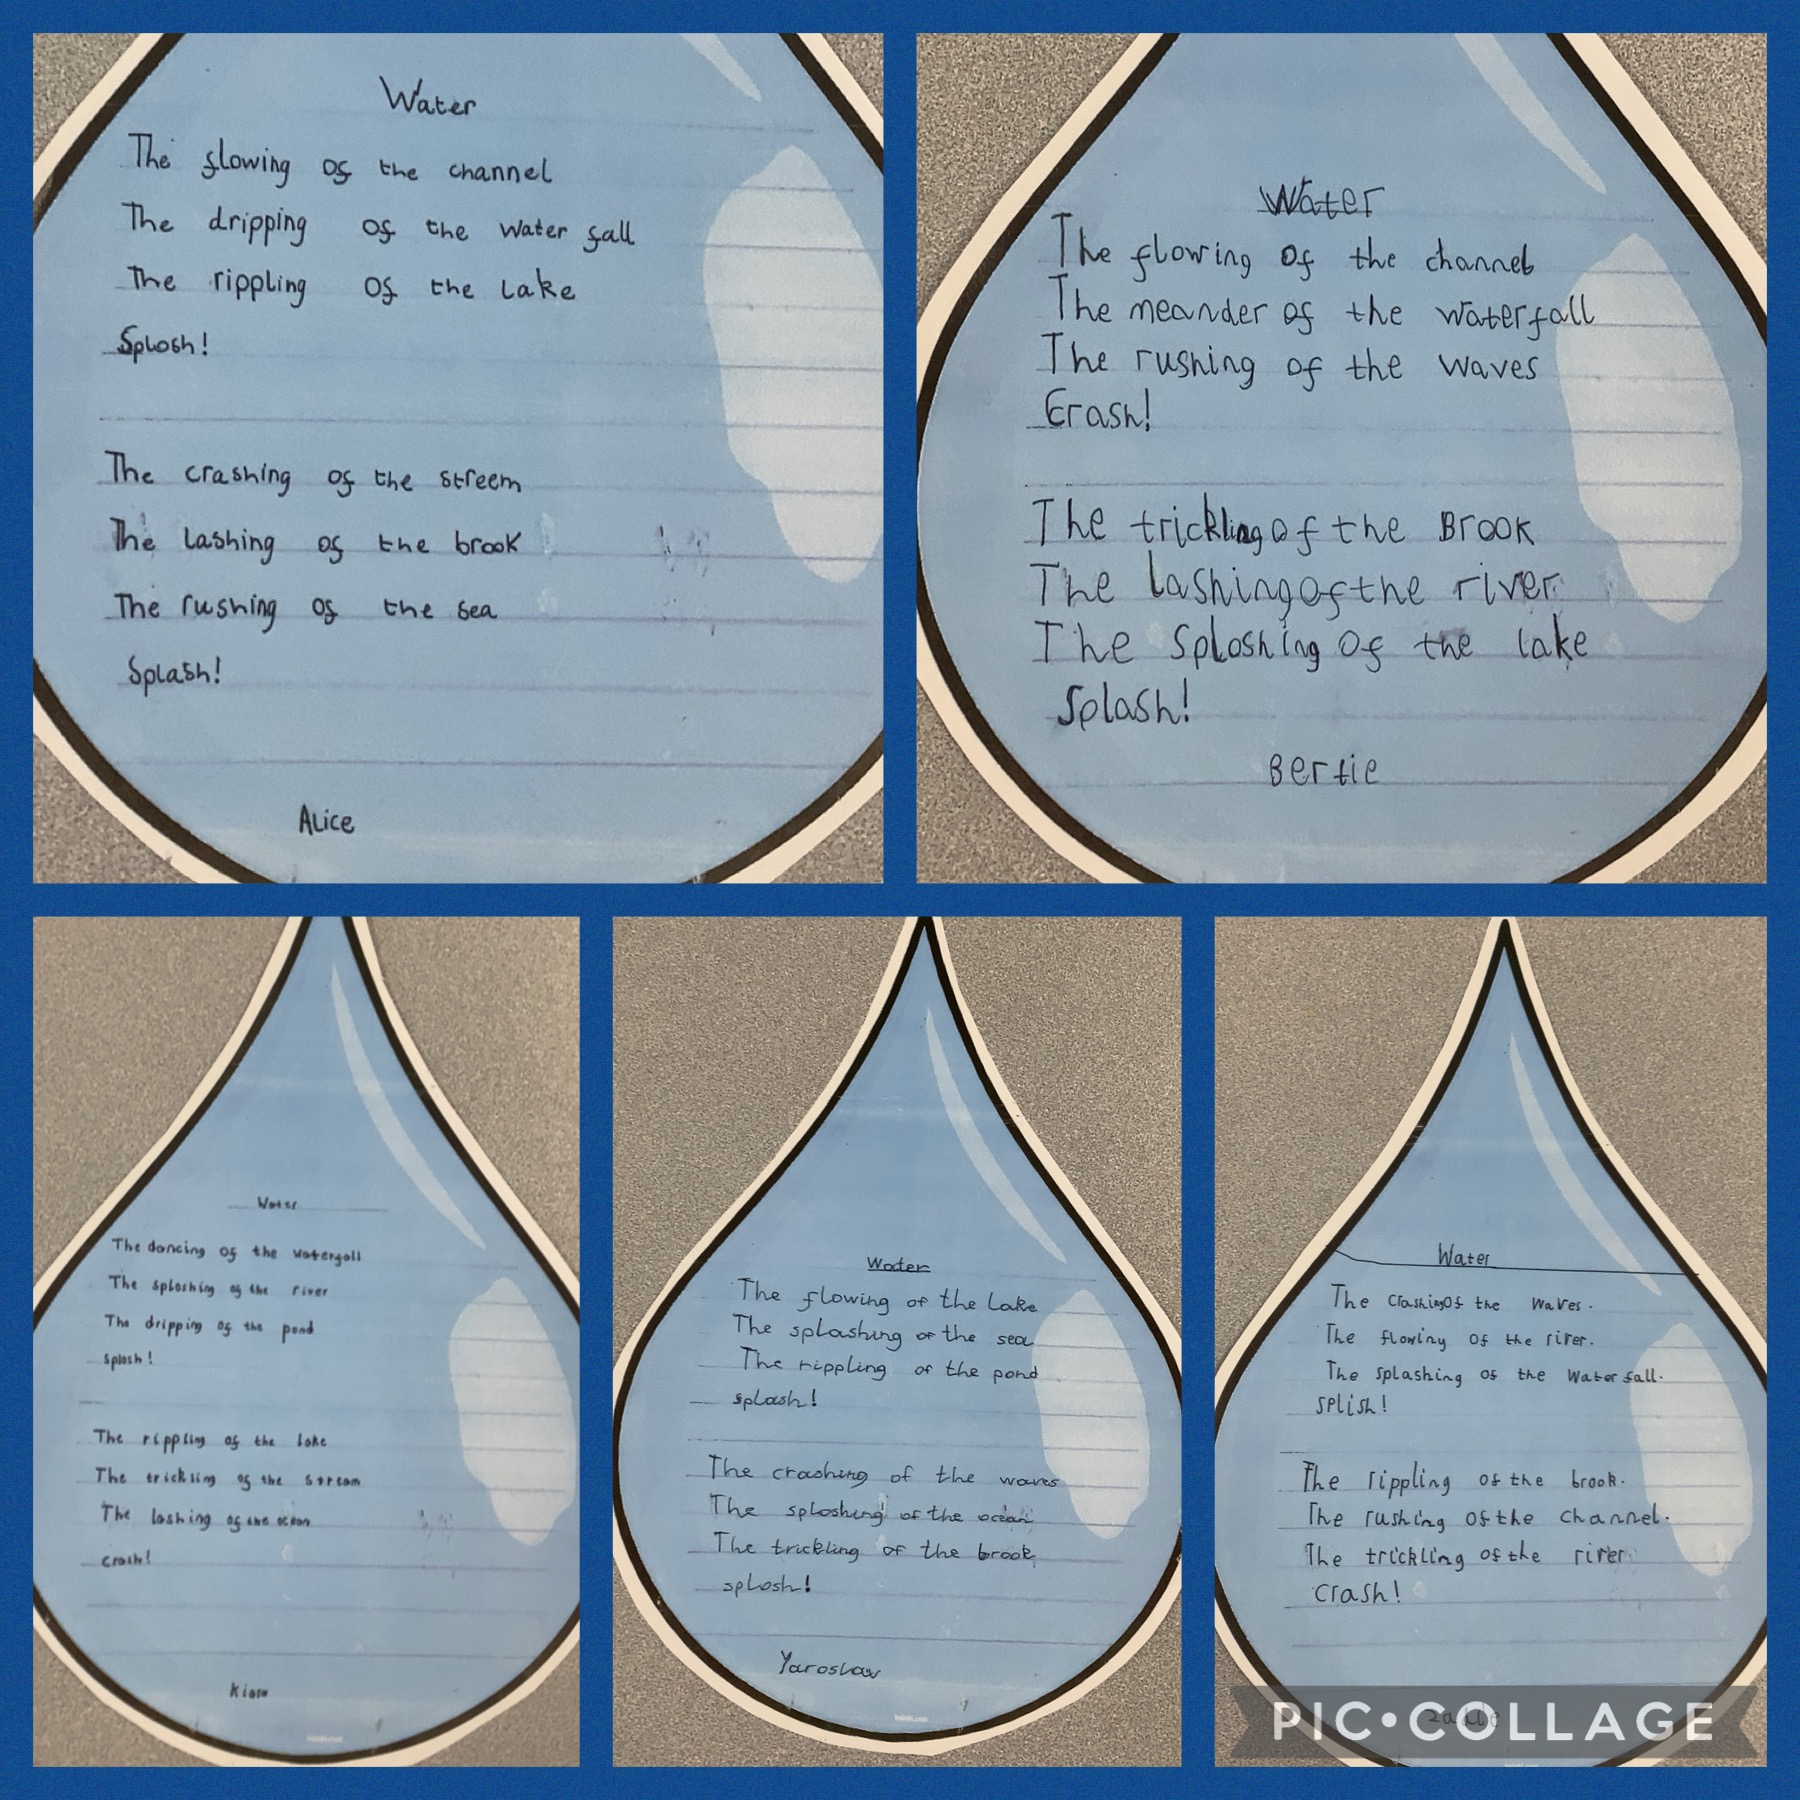 Water
The flowing of the channel
The dripping of the water fall
The rippling of the lake
Splosh!
The crashing of the streem
The lashing of the brook
The rushing of the sea
Splash!
Alice
Water
The flowing of the channel
The meander of the waterfall
The rushing of the waves
Crash!
The trickling of the Brook
The lashing of the river
The Sploshing of the lake
Splash!
Bertie
Water
The dancing of the waterfall
The sploshing of the river
The dripping of the pond
splosh!
The rippling of the lake
The trickling of the stream
The lashing of the ocean
crash!
Water
The flowing of the Lake
The splashing of the sea
The rippling of the pond
splash!
The crashing of the waves
The sploshing of the ocean
The trickling of the brook
splosh!
Yaroslav
Water
The Crashing Of the waves.
The flowing of the river.
The splashing of the Water fall.
splish!
The rippling of the brook.
The rushing of the channel.
The trickling of the river
Crash!
PIC•COLLAGE